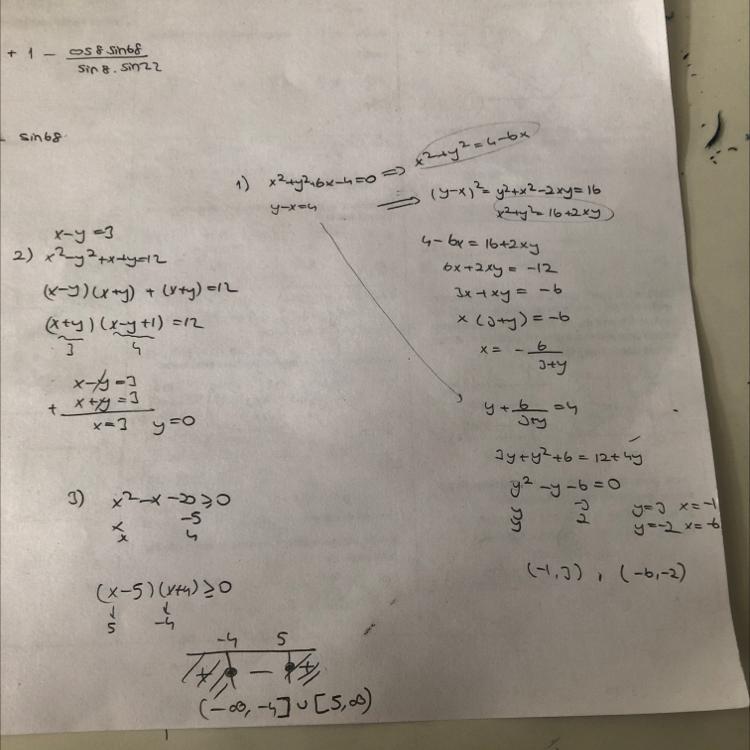 + 1 - cos8 sin68 / sin8 . sin22
sin68
1) x²+y²+6x-4=0 => x²+y²=4-6x
y-x=4 => (y-x)²= y²+x²-2xy=16
x²+y²=16+2xy
4-6x=16+2xy
6x+2xy = -12
3x+xy = -6
x(3+y)=-6
x = - 6/3+y
y + 6/3+y = 4
3y+y²+6=12+4y
y²-y-6=0
y -3 y=3 x=-1
y 2 y=-2 x=-6
(-1,3) , (-6,-2)
x-y=3
2) x²-y²+x+y=12
(x-y)(x+y) + (x+y)=12
(x+y)(x-y+1)=12
3 4
x-y=3
+ x+y=3
x=3 y=0
3) x²-x-20≥0
x -5
x 4
(x-5)(x+4)≥0
↓ ↓
5 -4
-4 5
+ - +
(-∞, -4] ∪ [5,∞)